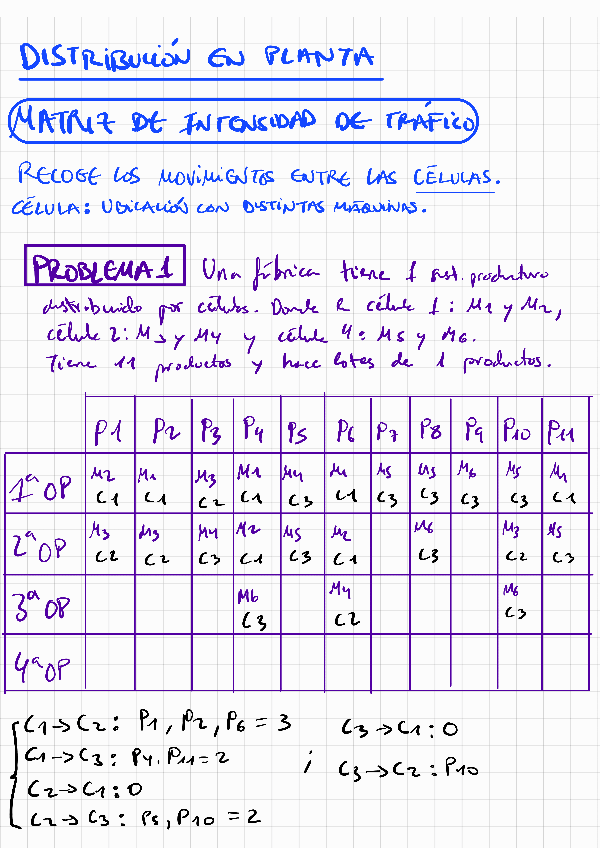 DISTRIBUCIÓN EN PLANTA
MATRIZ DE INTENSIDAD DE TRÁFICO
RECOGE LOS MOVIMIENTOS ENTRE LAS CÉLULAS.
CÉLULA: UBICACIÓN CON DISTINTAS MÁQUINAS.
PROBLEMA 1 Una fábrica tiene 1 sist. productivo
distribuido por células. Donde la célula 1: M1 y M2,
célula 2: M3 y M4 y célula 4: M5 y M6.
Tiene 11 productos y hace lotes de 1 productos.
P1 P2 P3 P4 P5 P6 P7 P8 P9 P10 P11
M2 M1 M3 M1 M4 M1 M5 M5 M6 M5 M1
1ª OP C1 C1 C2 C1 C3 C1 C3 C3 C3 C3 C1
M3 M3 M4 M2 M5 M2 M6 M3 M5
2ª OP C2 C2 C3 C1 C3 C1 C3 C2 C3
M6 M4 M6
3ª OP C3 C2 C3
4ª OP
C1→C2: P1, P2, P6 = 3 C3→C1: 0
C1→C3: P4. P11 = 2 ; C3→C2: P10
C2→C1: 0
C2→C3: P5, P10 = 2